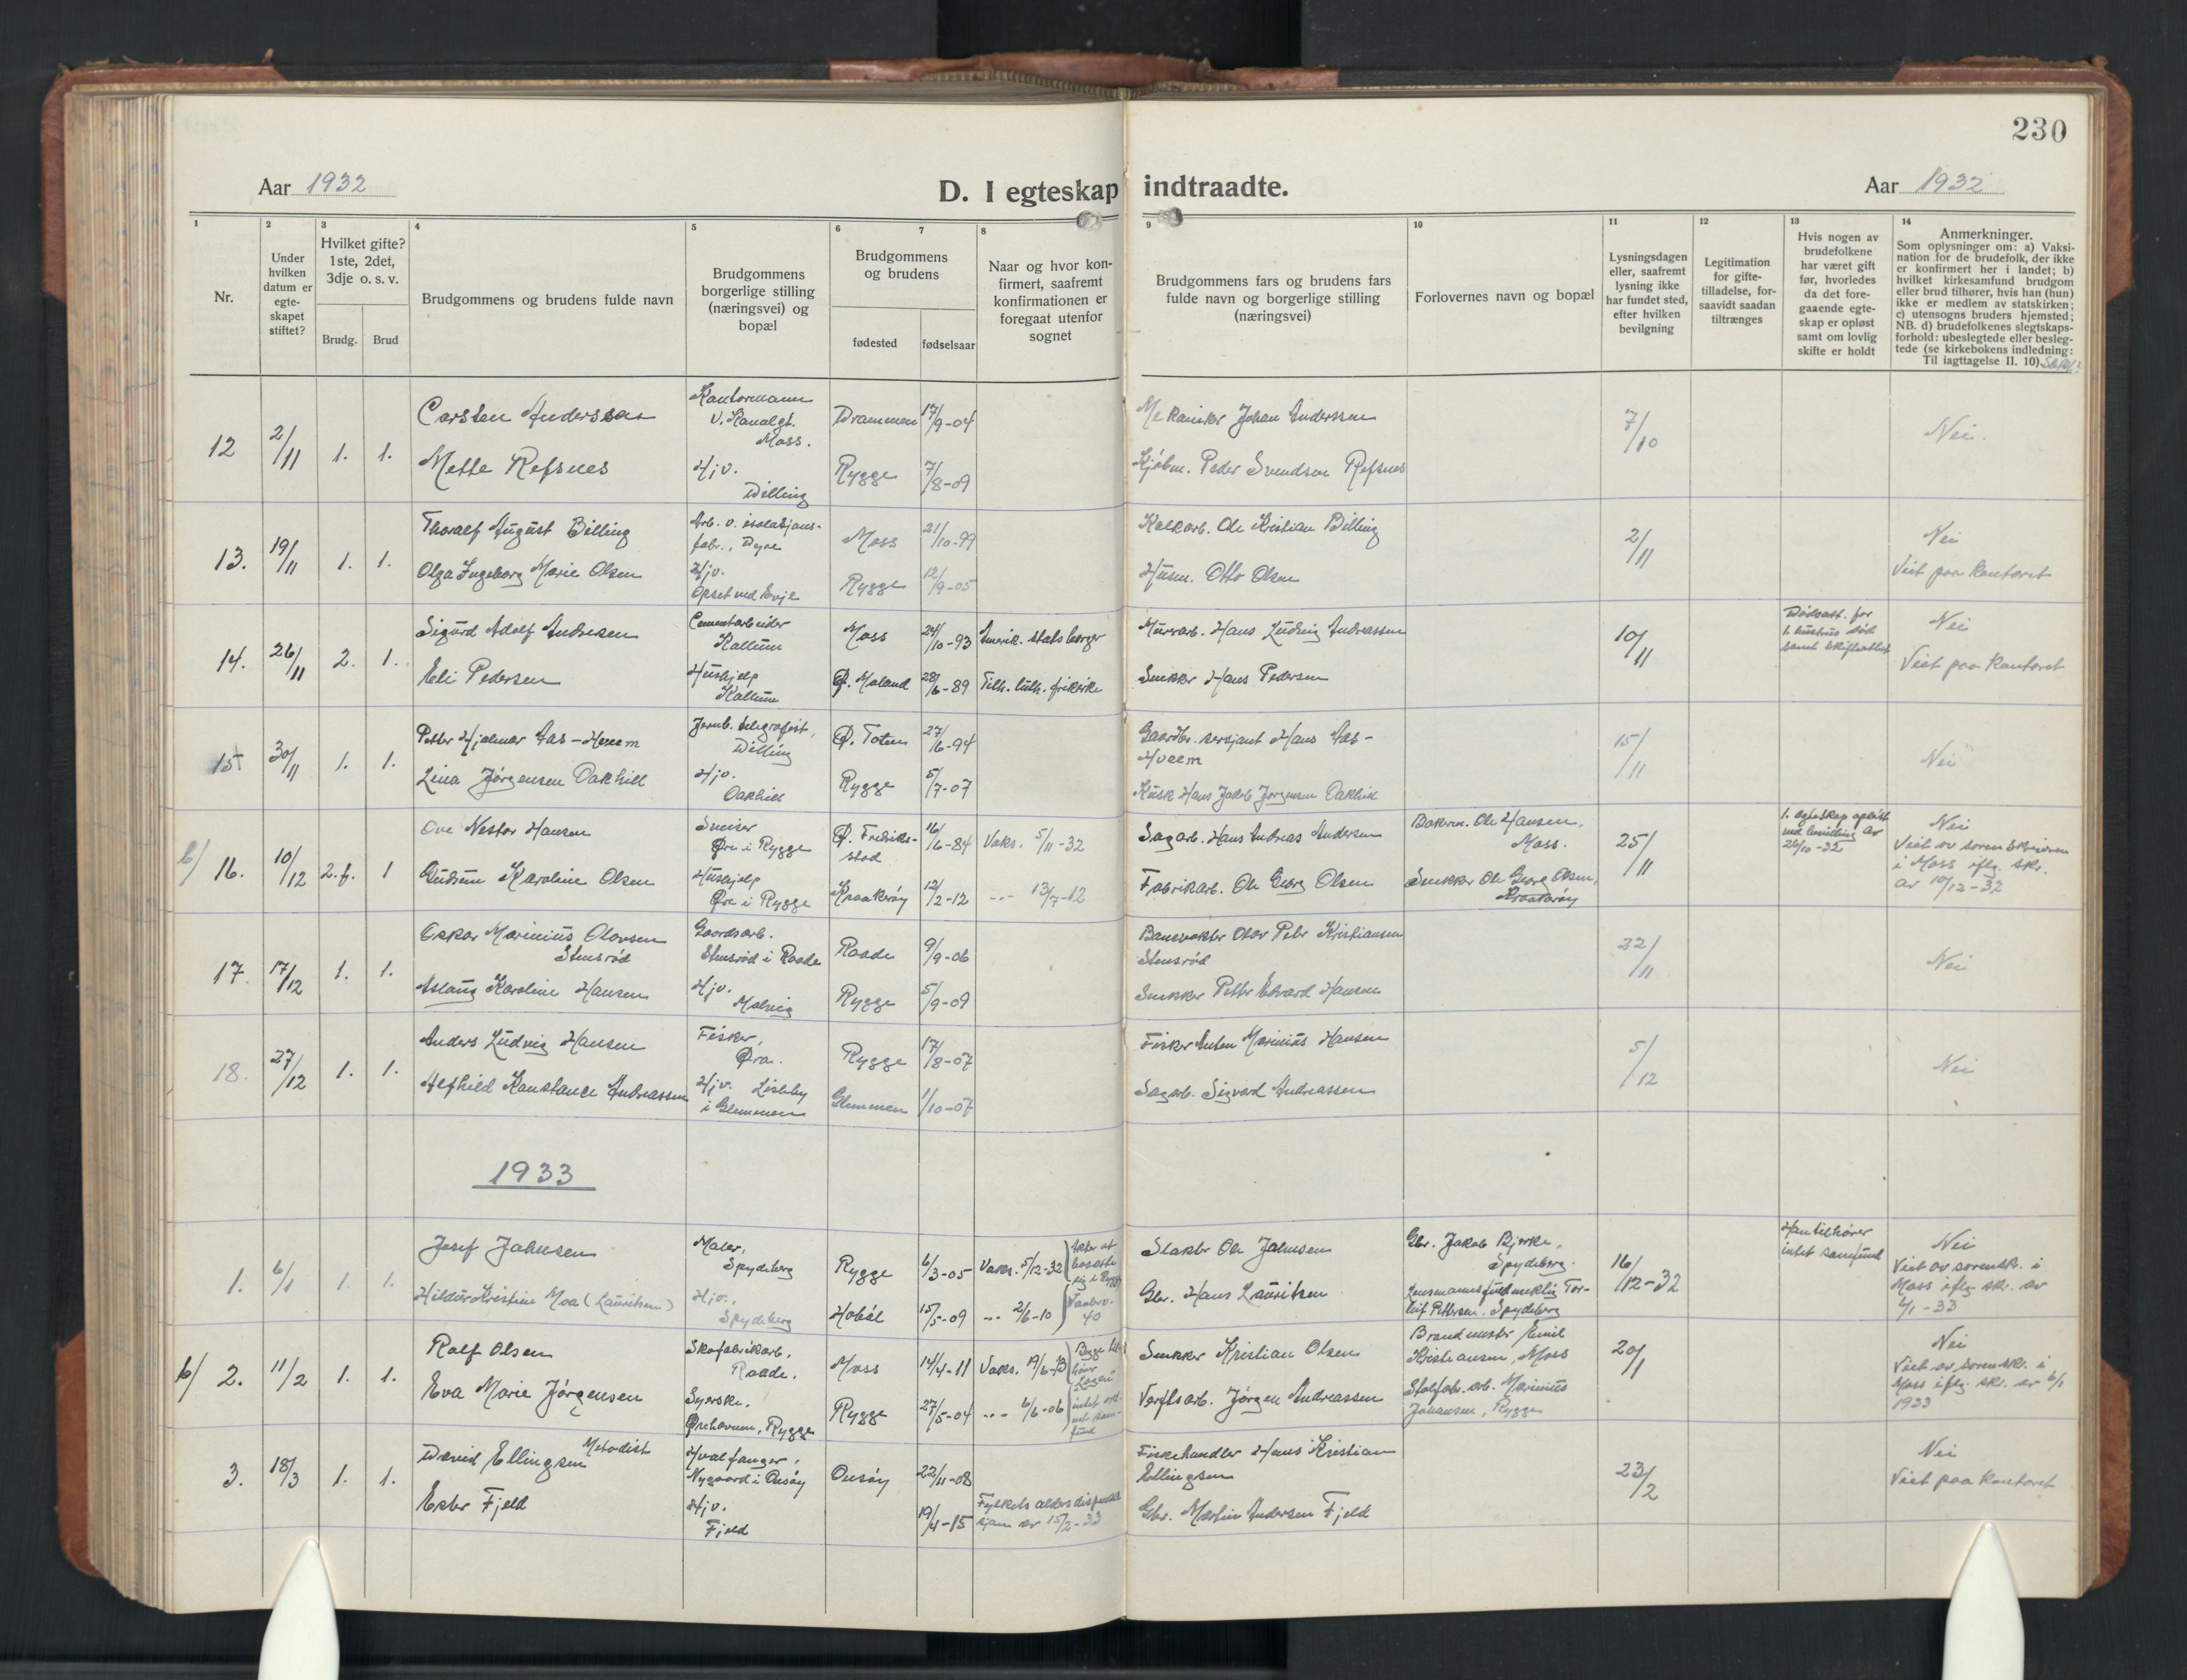 230
Aar 1932
D. I egteskap indtraadte.
Aar 1932
1
2
3
4
5
6
7
8
9
10
11
12
13
14
Nr.
Under
hvilken
datum er
egte-
skapet
stiftet?
Hvilket gifte?
1ste, 2det,
3dje o. s. v.
Brudg.
Brud
Brudgommens og brudens fulde navn
Brudgommens
borgerlige stilling
(næringsvei) og
bopæl
Brudgommens
og brudens
fødested
fødselsaar
Naar og hvor kon-
firmert, saafremt
konfirmationen er
foregaat utenfor
sognet
Brudgommens fars og brudens fars
fulde navn og borgerlige stilling
(næringsvei)
Forlovernes navn og bopæl
Lysningsdagen
eller, saafremt
lysning ikke
har fundet sted,
efter hvilken
bevilgning
Legitimation
for gifte-
tilladelse, for-
saavidt saadan
tiltrænges
Hvis nogen av
brudefolkene
har været gift
før, hvorledes
da det fore-
gaaende egte-
skap er opløst
samt om lovlig
skifte er holdt
Anmerkninger.
Som oplysninger om: a) Vaksi-
nation for de brudefolk, der ikke
er konfirmert her i landet; b)
hvilket kirkesamfund brudgom
eller brud tilhører, hvis han (hun)
ikke er medlem av statskirken;
c) utensogns bruders hjemsted;
NB. d) brudefolkenes slegtskaps-
forhold: ubeslegtede eller besleg-
tede (se kirkebokens indledning:
Til iagttagelse II. 10)
12
2/11
1.
1.
Carsten Anderssen
Mette Refsnes
Kontormann
V. Kanalgt.
Moss.
Hjv.
Dilling
Drammen
Rygge
17/9-04
7/8-09
Mekaniker Johan Anderssen
Kjøbm. Peder Svendsen Refsnes
7/10
Nei.
13.
19/11
1.
1.
Thoralf August Billing
Olga Ingeborg Marie Olsen
Arb. v. isolasjons-
fabr., Dyre
Hjv.
Opset ved Evje
Moss
Rygge
21/10-99
12/9-05
Kalkarb. Ole Kristian Billing
Husm. Otto Olsen
2/11
Nei
Viet paa kontoret
14.
26/11
2.
1.
Sigurd Adolf Andresen
Eli Pedersen
Cementarbeider
Kallum
Hushjelp
Kallum
Moss
Ø. Moland
24/10-93
28/6-89
Amerik. statsborger
Tilh. luth. frikirke
Murarb. Hans Ludvig Andreassen
Snekker Hans Pedersen
10/11
Dødsatt. for
1. hustrus død
samt skifteattest
Nei
Viet paa kontoret
15
30/11
1.
1.
Petter Hjalmar Aas-Hveem
Lina Jørgensen Oakhill
Jernb. telegrafist,
Dilling
Hjv.
Oakhill
Ø. Toten
Rygge
27/6-94
5/7-07
Gaardbr. sersjant Hans Aas-
Hveem
Kusk Hans Jakob Jørgensen Oakhill
15/11
Nei
b/ 16.
10/12
2. f.
1
Ove Nestor Hansen
Gudrun Karoline Olsen
Snekker
Øre i Rygge
Hushjelp
Øre i Rygge
Ø. Fredrik-
stad
Kraakerøy
16/6-84
12/2-12
Vaks. 5/11-32
-"- 13/7-12
Sagarb. Hans Andreas Andersen
Fabrikarb. Ole Georg Olsen
Bakerm. Ole Hansen,
Moss.
Snekker Ole Georg Olsen,
Kraakerøy
25/11
1. egteskap opløst
ved bevilling av
26/10-32
Nei
Viet av sorenskriveren
i Moss iflg. skr.
av 10/12-32
17.
17/12
1.
1.
Oskar Marinius Olavsen
Stensrød
Aslaug Karoline Hansen
Gaardsarb.
Stensrød i Raade
Hjv.
Halvrig
Raade
Rygge
9/9-06
5/9-09
Banevokter Olav Petr Kristiansen
Stensrød
Snekker Petter Edvard Hansen
22/11
Nei
18.
27/12
1.
1.
Anders Ludvig Hansen
Alfhild Konstance Andreassen
Fisker,
Øra.
Hjv. Lisleby
i Glemmen
Rygge
Glemmen
17/8-07
1/10-07
Fisker Anton Marinius Hansen
Sagarb. Sigvard Andreassen
5/12
Nei
1933
1.
6/1
1.
1.
Josef Johnsen
Hildur Kristine Moa (Lauritsen)
Maler,
Spydeberg
Hjv.,
Spydeberg
Rygge
Hobøl
6/3-05
15/5-09
Vaks. 5/12-32
-"- 2/6-10
akter at
bosætte
sig i Rygge
Vaabr.
40
Slakter Ole Johnsen
Gbr. Hans Lauritsen
Gbr. Jakob Bjerke,
Spydeberg.
Lensmannsfuldmektig Tor-
leif Pettersen, Spydeberg
16/12-32
Han tilhører
intet samfund
Nei
Viet av sorenskr. i
Moss iflg. skr. av
6/1-33
b/ 2.
11/2
1.
1.
Rolf Olsen
Eva Marie Jørgensen
Skofabrikarb.,
Raade.
Syerske,
Ørehavnen, Rygge
Moss
Rygge
14/4-11
27/5-04
Vaks. 19/6-13
-"- 6/6-06
Begge til-
hører
intet ord-
net sam-
fund
Snekker Kristian Olsen
Verftsarb. Jørgen Andreassen
Brandmester Emil
Kristiansen, Moss
Stolfabr. arb. Marinius
Johansen, Rygge
20/1
Nei
Viet av sorenskr. i
Moss iflg. skr. av 6/1
1933
3.
18/3
1.
1.
David Ellingsen Metodist
Ester Fjeld
Hvalfanger,
Nygaard i Onsøy
Hjv.
Fjeld
Onsøy
22/11-08
19/4-15
Fylkets aldersdispensa
sjon av 15/2-33
Fiskehandler Hans Kristian
Ellingsen
Gbr. Martin Andersen Fjeld
23/2
Nei
Viet paa kontoret